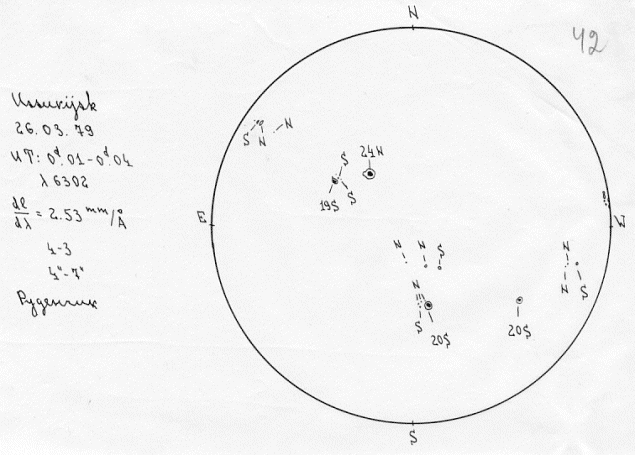 N
42
Ussurijsk
26.03.79
UT: 0ᵈ.01-0ᵈ.04
λ 6302
dl/dλ = 2.53 mm/Å
4-3
4"-7"
Руденчик
S N N
24N
S
19S S
E
W
N N S
N
N S
N
S
20S
20S
S